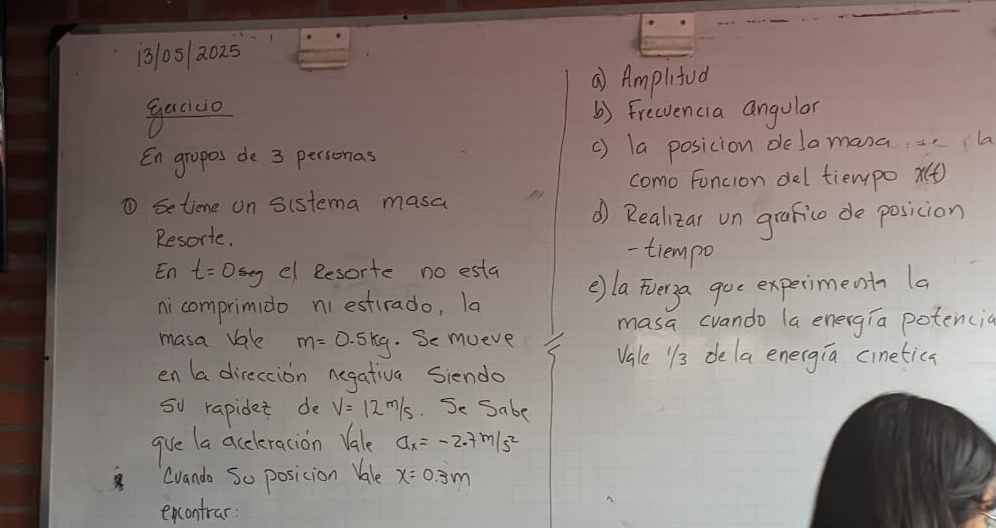 13/05/2025
Ejercicio
En grupos de 3 personas
① Se tiene un sistema masa
Resorte.
En t=0seg el Resorte no esta
ni comprimido ni estirado, la
masa vale m=0.5kg. Se mueve
en la dirección negativa siendo
su rapidez de V=12m/s. Se sabe
que la aceleración vale ax=-2.7m/s²
Cuando su posicion vale x=0.3m
encontrar:
a) Amplitud
b) Frecuencia angular
c) la posicion de la masa la
como Funcion del tiempo x(t)
d) Realizar un grafico de posicion
-tiempo
e) la Fuerza que experimenta la
masa cuando la energía potencia
Vale 1/3 de la energía cinetica